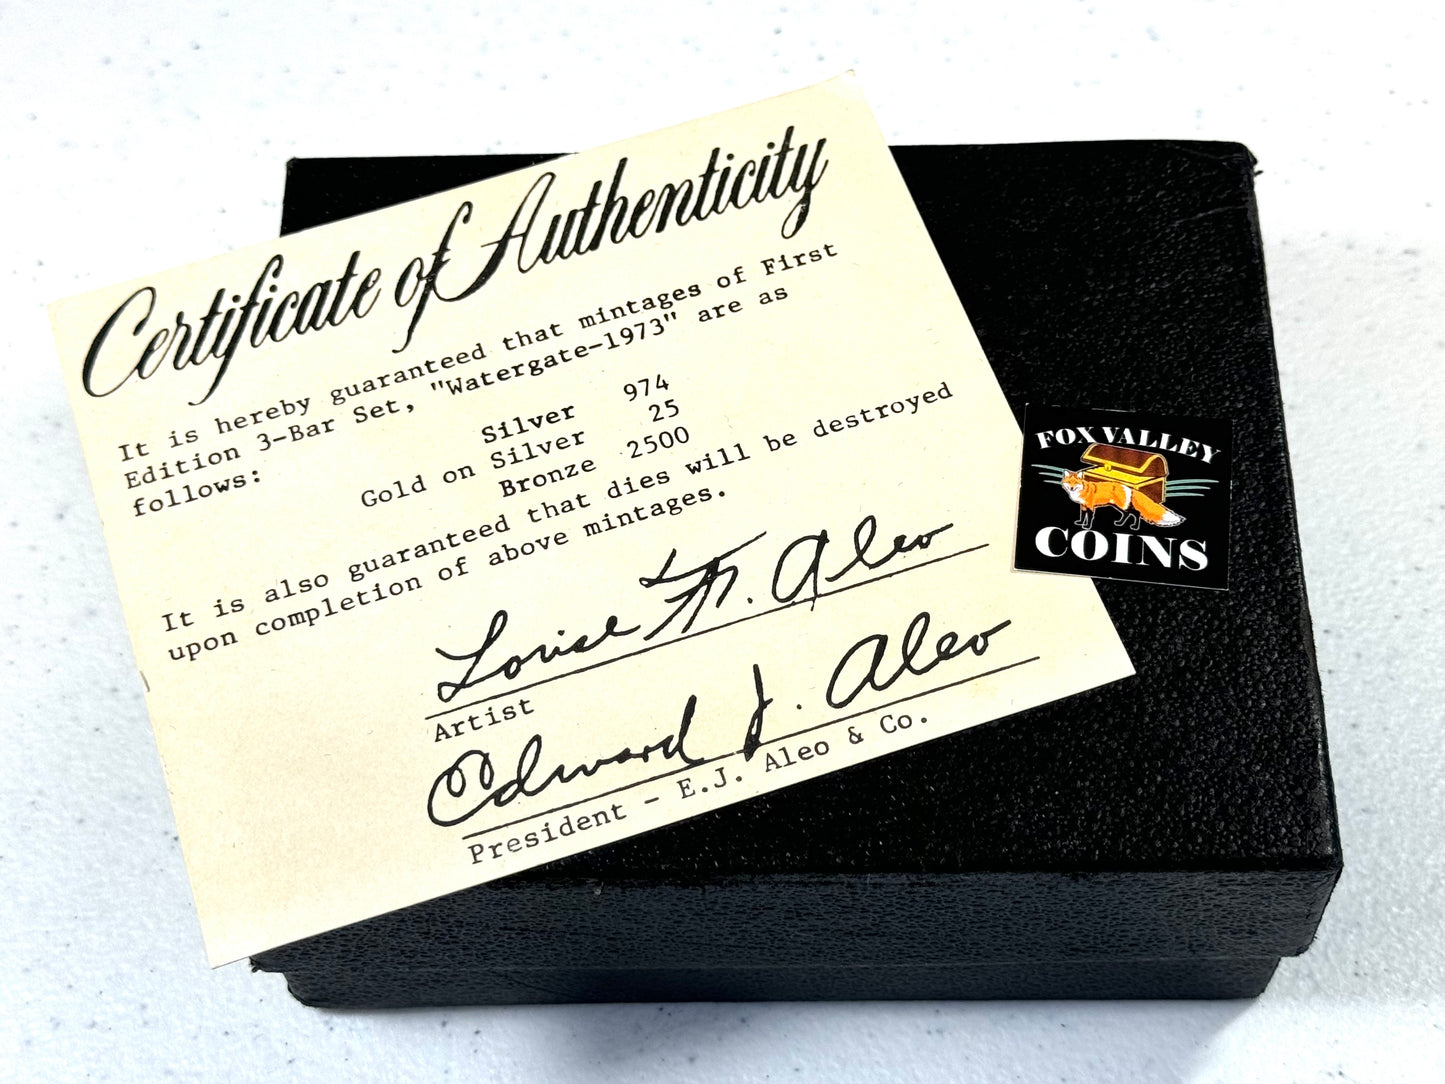 Certificate of Authenticity
It is hereby guaranteed that mintages of First
Edition 3-Bar Set, "Watergate-1973" are as
follows:
Silver 974
Gold on Silver 25
Bronze 2500
It is also guaranteed that dies will be destroyed
upon completion of above mintages.
Louise Fr. Aleo
Artist
Edward J. Aleo
President - E.J. Aleo & Co.
FOX VALLEY
COINS